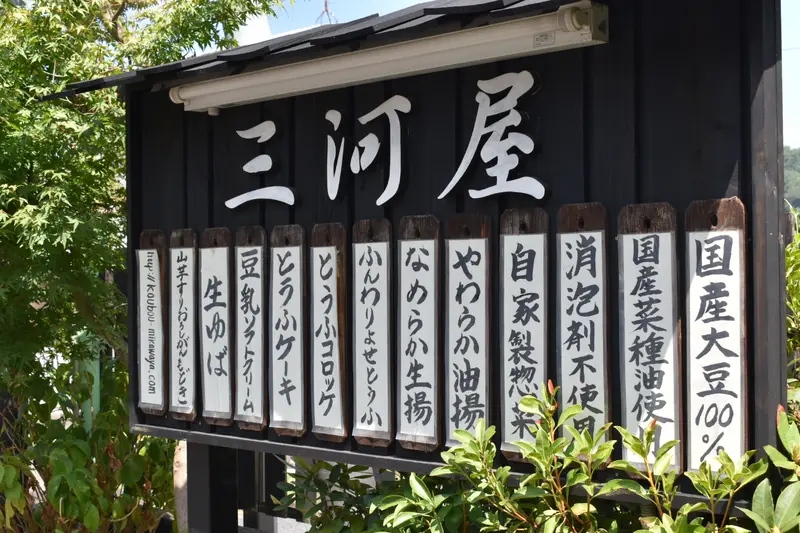 三河屋
国産大豆100%
国産菜種油使用
消泡剤不使用
自家製惣菜
やわらか油揚
なめらか生揚
ふんわりよせとうふ
とうふコロッケ
とうふケーキ
豆乳ソフトクリーム
生ゆば
山芋すりおろしがんもどき
http://koubou-mikawaya.com